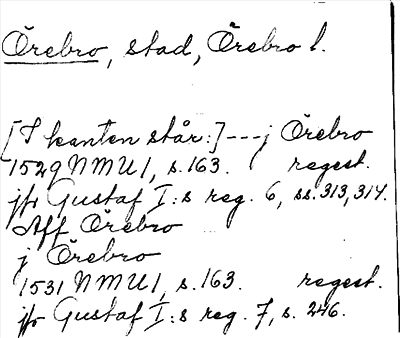 Örebro, stad, Örebro l.
[I kanten står:] --- j Örebro
1529 NMU 1, s. 163. regest.
jfr Gustaf I:s reg. 6, ss. 313, 314.
Aff Örebro
j Örebro
1531 NMU 1, s. 163. regest.
jfr Gustaf I:s reg. 7, s. 246.